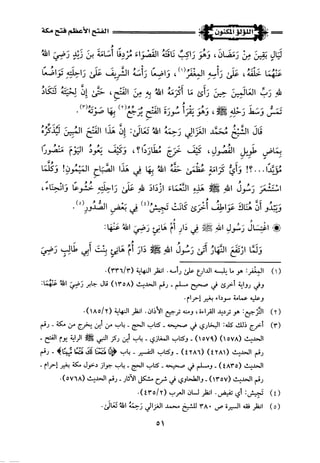 اللؤلؤ المكنون
الفتح الأعظم فتح مكة
لَيَالٍ بَقِينَ مِنْ رَمَضَانَ، وَهُوَ رَاكِبٌ نَاقَتَهُ القَصْوَاءَ مُرْدِفًا أُسَامَةَ بنَ زَيْدٍ رَضِيَ اللهُ
عَنْهُمَا خَلْفَهُ، عَلَى رَأْسِهِ المِغْفَرُ(١)، وَاضِعًا رَأْسَهُ الشَّرِيفَ عَلَى رَاحِلَتِهِ تَوَاضُعًا
للهِ رَبِّ العَالَمِينَ حِينَ رَأَى مَا أَكْرَمَهُ اللهُ بِهِ مِنَ الفَتْحِ، حَتَّى إِنَّ لِحْيَتَهُ لَتَكَادُ
تَمَسُّ وَسَطَ رَحْلِهِ ﷺ، وَهُوَ يَقْرَأُ سُورَةَ الفَتْحِ يُرَجِّعُ(٢) بِهَا صَوْتَهُ(٣).
قَالَ الشَّيْخُ مُحَمَّد الغَزَالِي رَحِمَهُ اللهُ تَعَالَى: إِنَّ هَذَا الفَتْحَ المُبِينَ لَيُذَكِّرُهُ
بِمَاضٍ طَوِيلِ الفُصُولِ، كَيْفَ خَرَجَ مُطَارَدًا؟، وَكَيْفَ يَعُودُ اليَوْمَ مَنْصُورًا
مُؤَيَّدًا...؟! وَأَيُّ كَرَامَةٍ عُظْمَى حَفَّهُ اللهُ بِهَا فِي هَذَا الصَّبَاحِ المَيْمُونِ! وَكُلَّمَا
اسْتَشْعَرَ رَسُولُ اللهِ ﷺ هَذِهِ النَّعْمَاءَ ازْدَادَ للهِ عَلَى رَاحِلَتِهِ خُشُوعًا وَانْحِنَاءً،
وَيَبْدُو أَنَّ هُنَاكَ عَوَاطِفَ أُخْرَى كَانَتْ تَجِيشُ(٤) فِي بَعْضِ الصُّدُورِ(٥).
اغْتِسَالُ رَسُولِ اللهِ ﷺ فِي دَارِ أُمِّ هَانِئٍ رَضِيَ اللهُ عَنْهَا:
وَلَمَّا ارْتَفَعَ النَّهَارُ أَتَى رَسُولُ اللهِ ﷺ دَارَ أُمِّ هَانِئٍ بِنْتِ أَبِي طَالِبٍ رَضِيَ
(١) المِغْفَر: هو ما يلبسه الدارع على رأسه. انظر النهاية (٣٣٦/٣)
وفي رواية أخرى في صحيح مسلم - رقم الحديث (١٣٥٨) قال جابر رَضِيَ اللهُ عَنْهُمَا:
وعليه عمامة سوداء بغير إحرام.
(٢) التَّرْجِيع: هو ترديد القراءة، ومنه ترجيع الأذان. انظر النهاية (١٨٥/٢).
(٣) أخرج ذلك كله: البخاري في صحيحه - كتاب الحج - باب من أين يخرج من مكة - رقم
الحديث (١٥٧٨) (١٥٧٩) - وكتاب المغازي - باب أين ركز النبي ﷺ الراية يوم الفتح -
رقم الحديث (٤٢٨١) (٤٢٨٦) - وكتاب التفسير - باب ﴿إِنَّا فَتَحْنَا لَكَ فَتْحًا مُّبِينًا﴾ - رقم
الحديث (٤٨٣٥) - ومسلم في صحيحه - كتاب الحج - باب جواز دخول مكة بغير إحرام -
رقم الحديث (١٣٥٧) - والطحاوي في شرح مشكل الآثار - رقم الحديث (٥٧٦٨).
(٤) تَجِيش: أي تفيض. انظر لسان العرب (٤٣٥/٢).
(٥) انظر فقه السيرة ص ٣٨٠ للشيخ محمد الغزالي رَحِمَهُ اللهُ تَعَالَى.
٥١